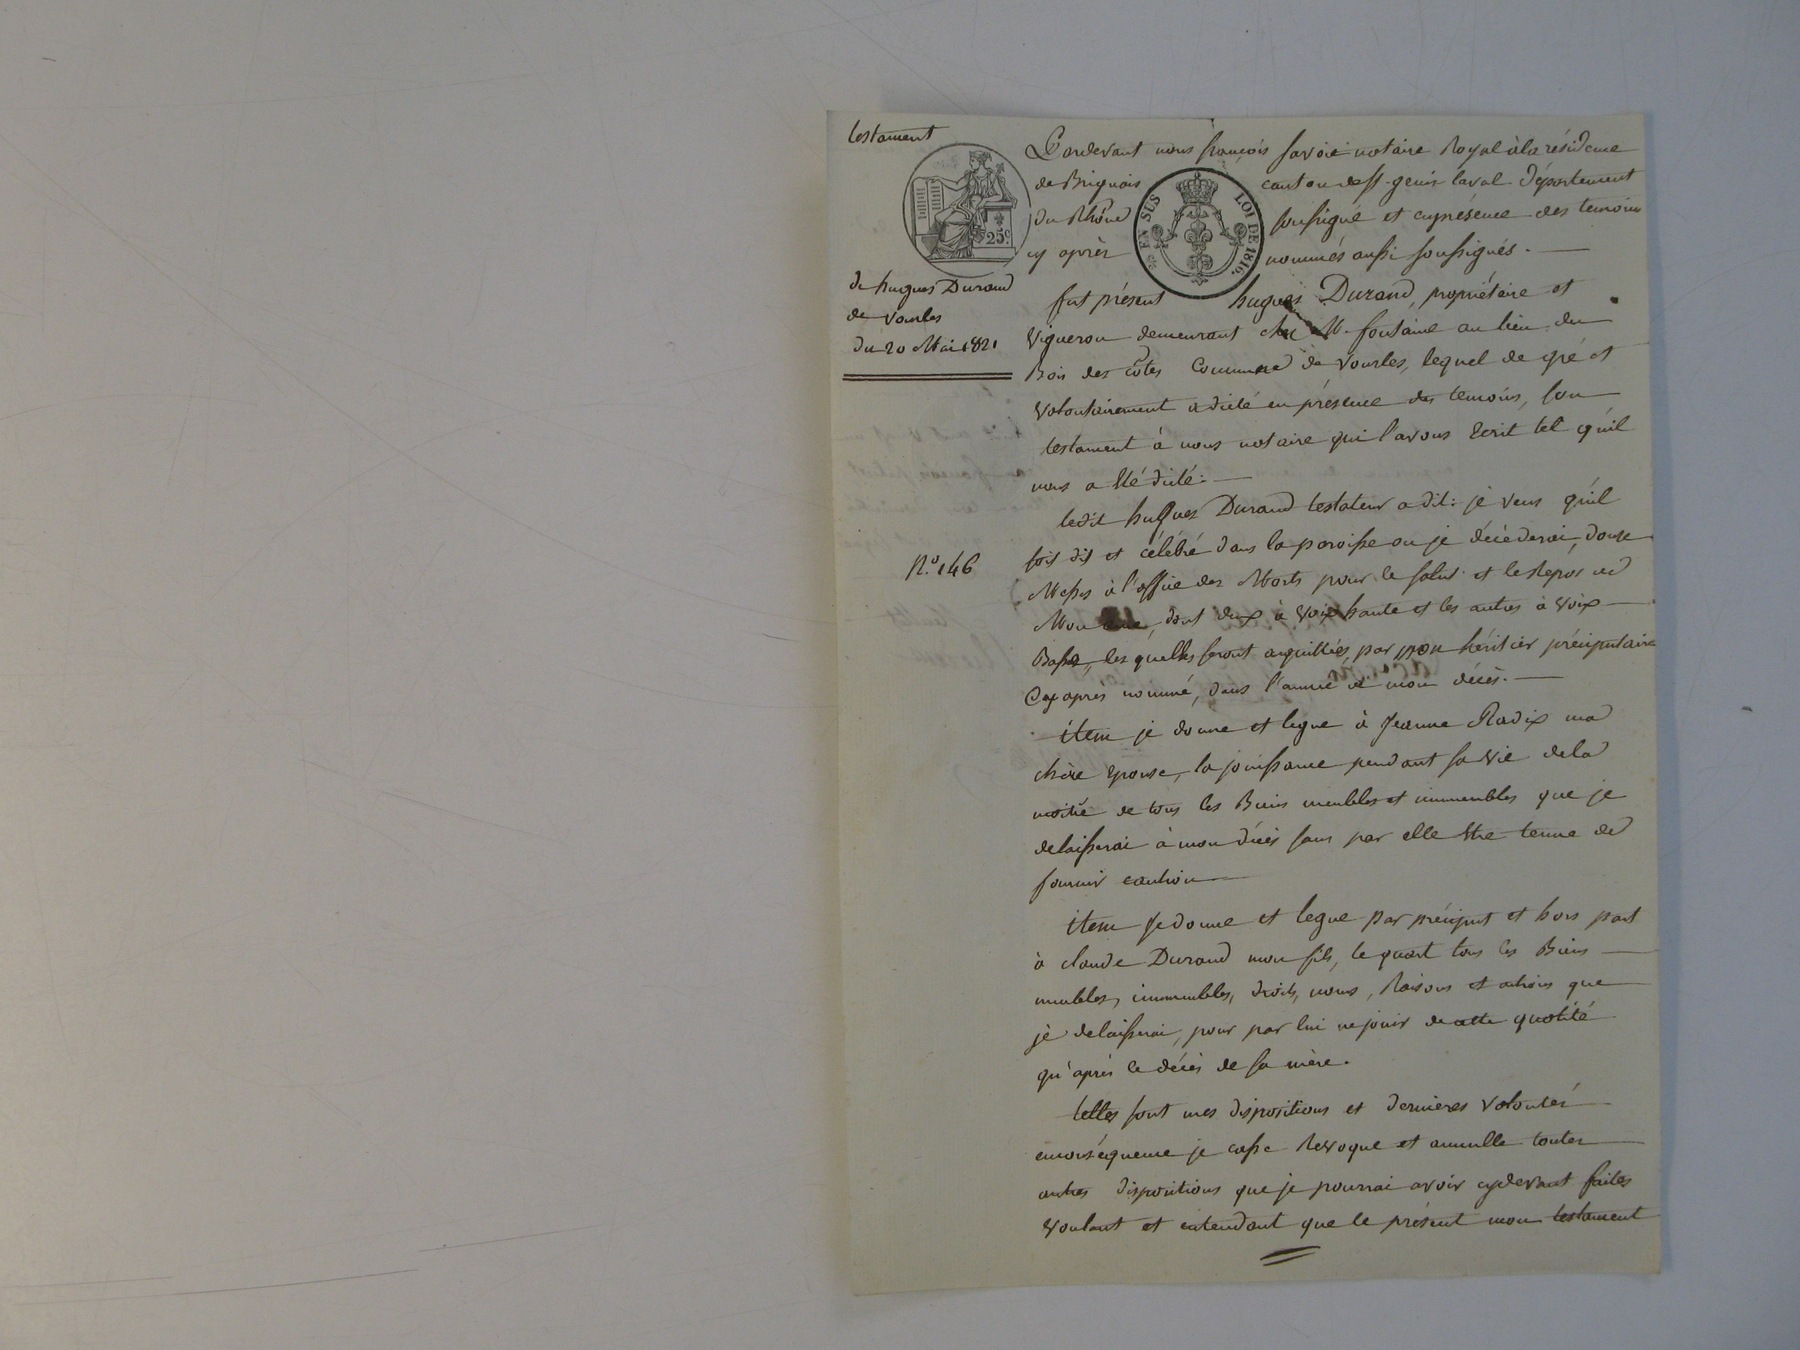 testament
de hugues Durand
de Vourles
du 20 Mai 1821
N.º 146
25 c.
c.es EN SUS LOI DE 1816.
Pardevant nous françois Savoie notaire Royal à la résidence
de Brignais canton de St. genis laval Département
du Rhône soussigné et en présence des temoins
cy après nommés aussi soussignés. —
fut présent hugues Durand, propriétaire et
Vigneron demeurant chez M. fontaine au lieu du
Bois des côtes Commune de Vourles, lequel de gré et
Volontairement a dicté en présence des temoins, son
testament à nous notaire qui l'avons Ecrit tel qu'il
nous a été dicté: —
ledit hugues Durand testateur a dit: je veux qu'il
soit dit et célébré dans la paroisse ou je décèderai, douze
Messes à l'office des Morts pour le salut et le Repos de
Mon ame, dont deux à Voix haute et les autres à Voix —
Basse, les quelles seront acquittées, par mon héritier préciputaire
Cy après nommé, dans l'année de mon décès. —
item je donne et legue à Jeanne Radix ma
chère Epouse, la jouissance pendant sa vie de la
moitié de tous les Biens meubles et immeubles que je
delaisserai à mon décès sans par elle être tenue de
fournir caution —
item Je donne et legue par préciput et hors part
à claude Durand mon fils, le quart tous les Biens —
meubles, immeubles, droits, noms, Raisons et actions que
je delaisserai, pour par lui ne jouir de cette quotité
qu'après le décès de sa mère.
telles sont mes dispositions et dernieres Volontés
enconséquence je casse Revoque et annulle toutes
autres dispositions que je pourrai avoir cydevant faites
Voulant et entendant que le présent mon testament